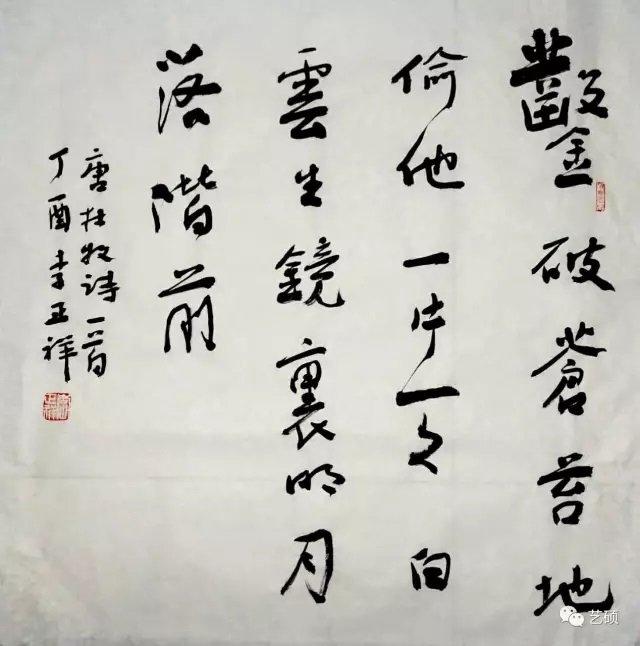 鑿破蒼苔地
偷他一片天白
雲生鏡裏明月
落階前
唐杜牧诗一首
丁酉李祥
艺硕